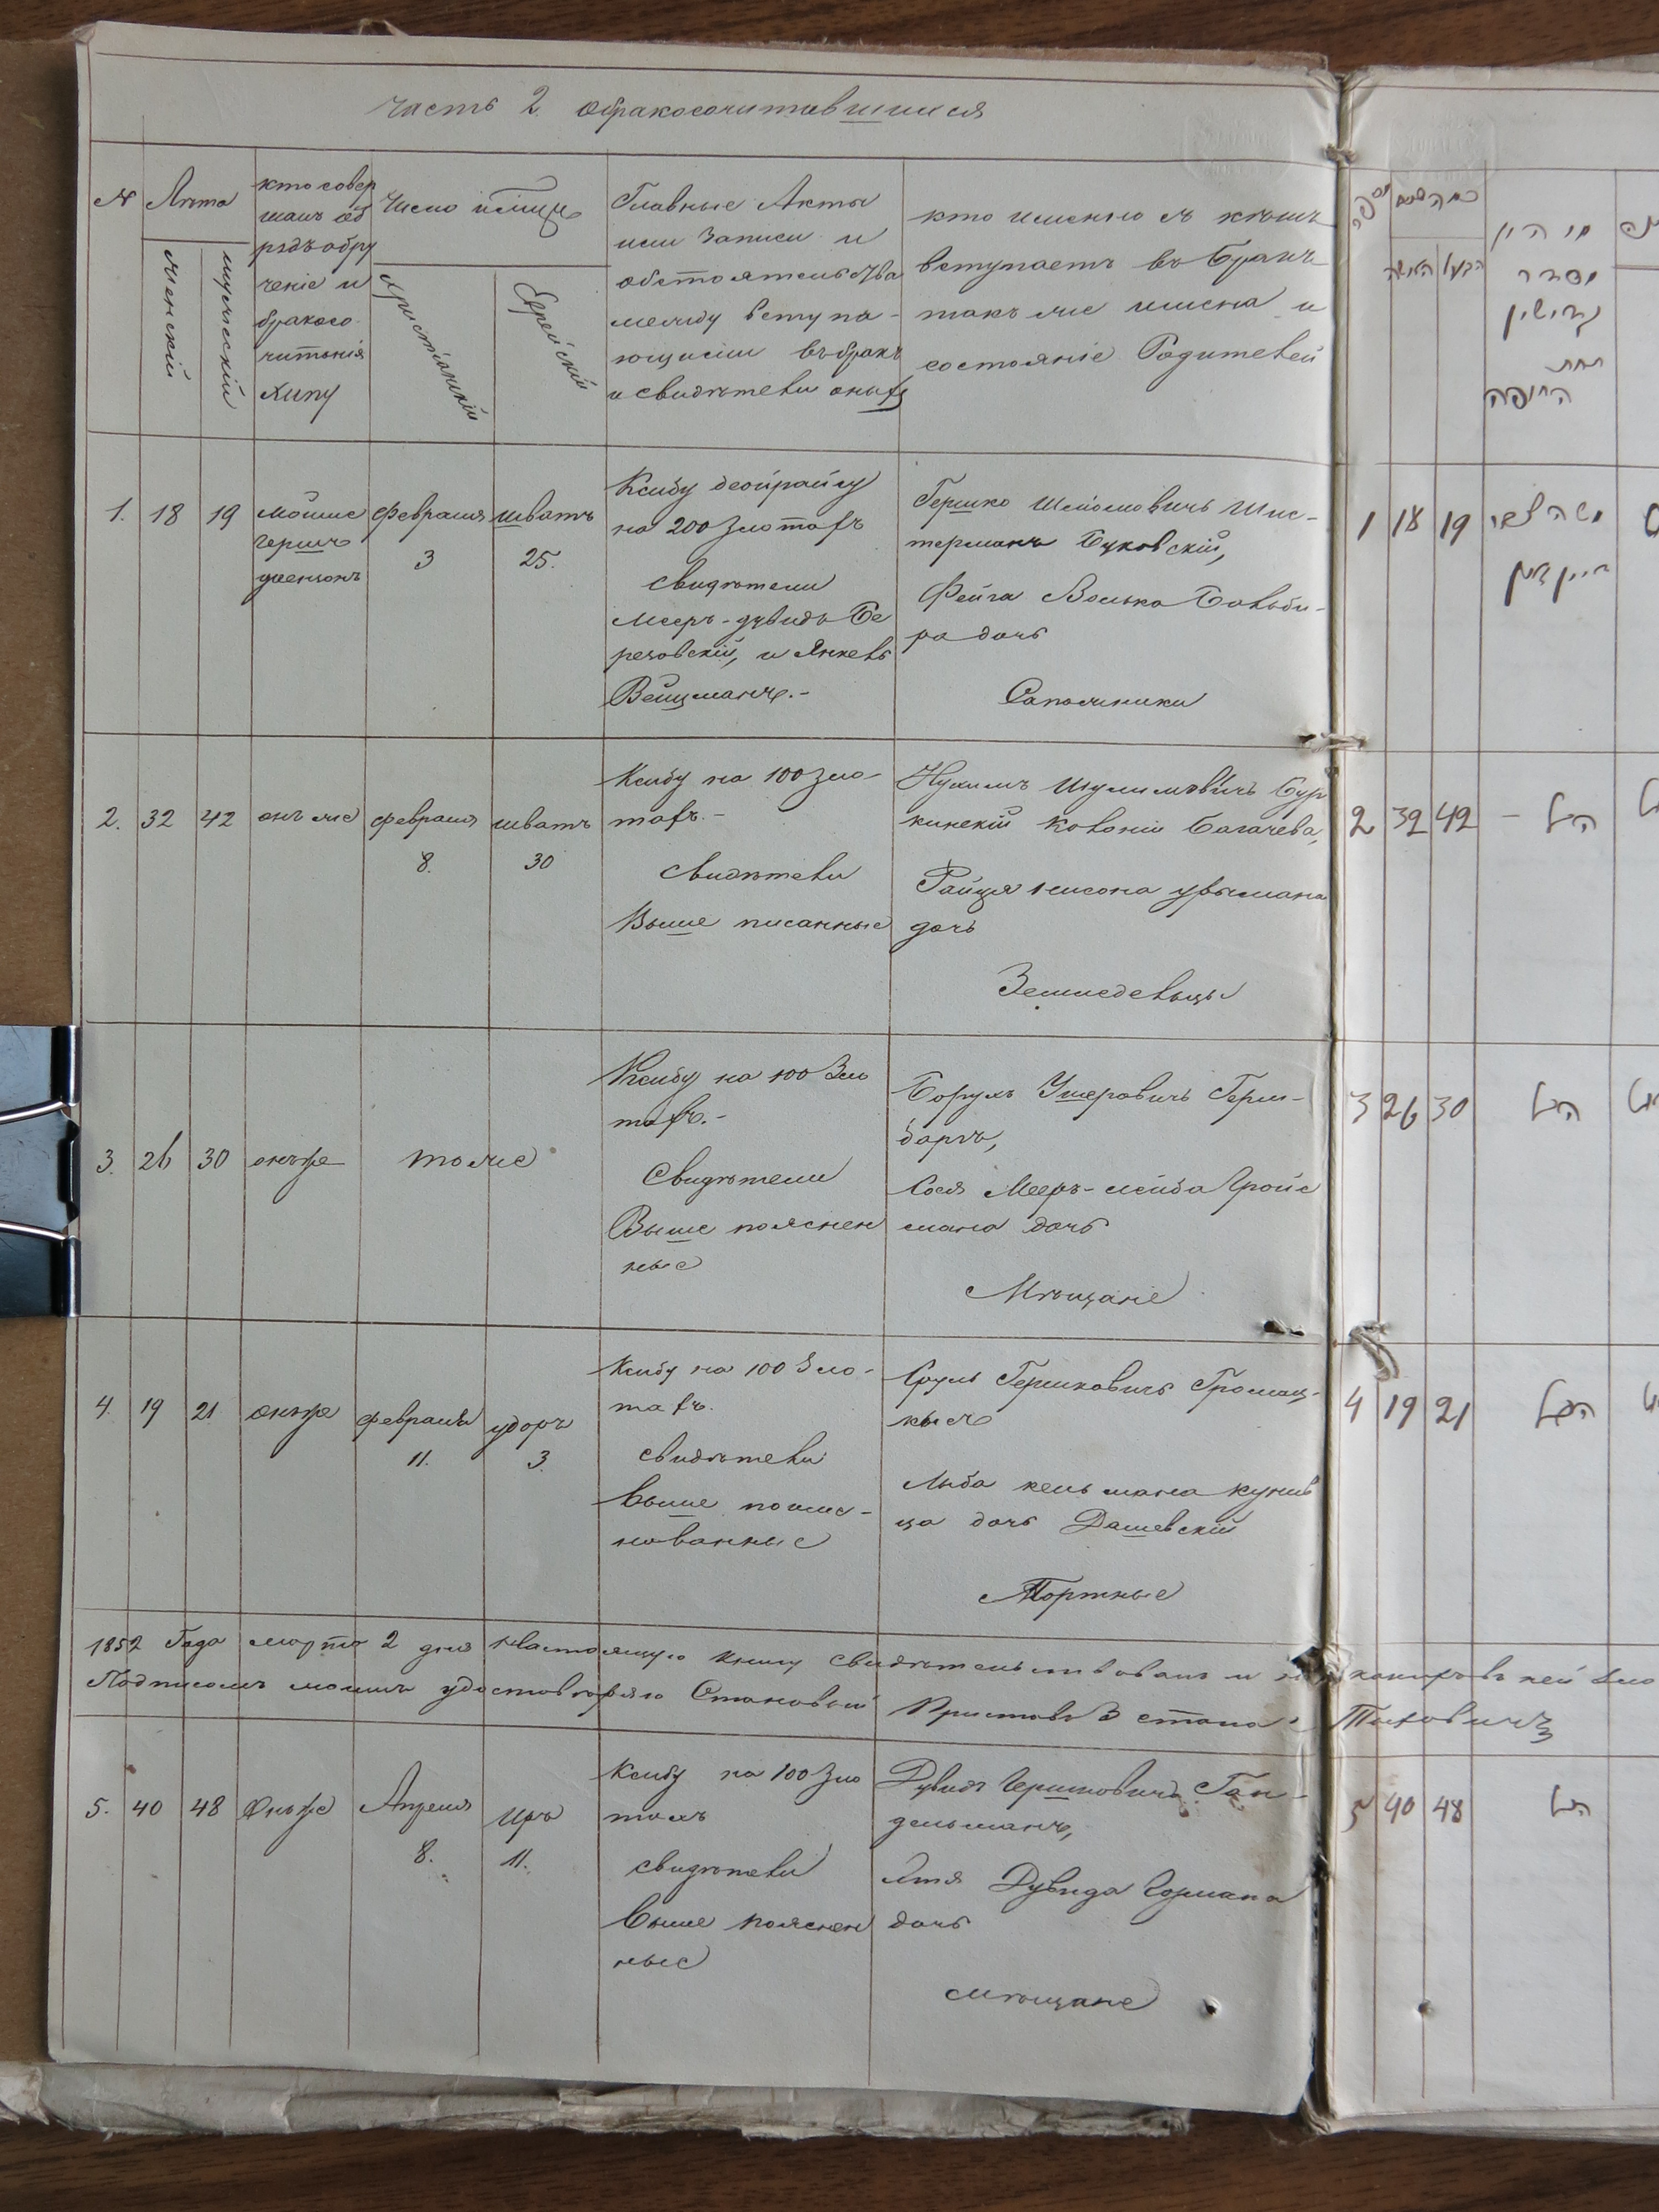 Часть 2. Обракосочитавшимся
№
Лѣта
женскій
мужескій
кто совер
шалъ об
рядъ обру
ченіе и
бракосо
читанія
Хипу
Число и мѣсяцъ
христіанскій
Еврейскій
Главные Акты
или Записи и
обстоятельства
между вступа-
ющими въ бракъ
и свидѣтели оныхъ
кто именно съ кѣмъ
вступаетъ въ бракъ
также имена и
состояніе Родителей
1. 18 19
Мошко
Гершъ
февраля
3
шватъ
25.
Ксибу
на 200 злотахъ
свидѣтели
Мееръ-дувидъ Бе
резовскій, и Янкевъ
Вейцманъ.-
Гершко Шліомовичъ Шис-
терманъ Буковскій,
Фейга Волька
ра дочь
Сапожники
2. 32 42 онъ же
февраля
8.
шватъ
30
Ксибу на 100 зло-
тахъ.-
свидѣтели
Выше писанные
Нухимъ Шулимовичъ Бур
кинскій Колоніи Багачева,
Райця Нисона
дочь
Земледельцы
3. 26 30 онъ же тоже
Ксибу на 100 Зло
тахъ.-
Свидѣтели
Выше пояснен
ные
Борухъ Ушеровичъ Герш-
баргъ,
Сося Мееръ-лейба Гройс
мана дочь
Мѣщане
4. 19 21 онъ же
февраля
11.
удоръ
3.
Ксибу на 100 Зло-
тахъ.
свидѣтели
выше поиме-
нованные
Сруль Гершковичъ Громац-
кый
Лыба кельмана
ца дочь Дашевскій
Портные
1852 Года Марта 2 дня Настоящую Книгу свидѣтельствовалъ и
Подписомъ моимъ удостовѣряю Становый Приставъ 3 стана Тиховичъ
5. 40 48 Онъ же
Апреля
8.
иръ
11.
Ксибу на 100 зло
тахъ
свидѣтели
выше пояснен
ные
Дувидъ Гершковичъ Ган-
дельманъ,
Этя Дувида Гормана
дочь
мѣщане
מי הי׳
מסדר
קדושין
תחת
החופה
הבעל האשה
1 18 19 משה
2 32 42 – הנ״ל
3 26 30 הנ״ל
4 19 21 הנ״ל
5 40 48 הנ״ל